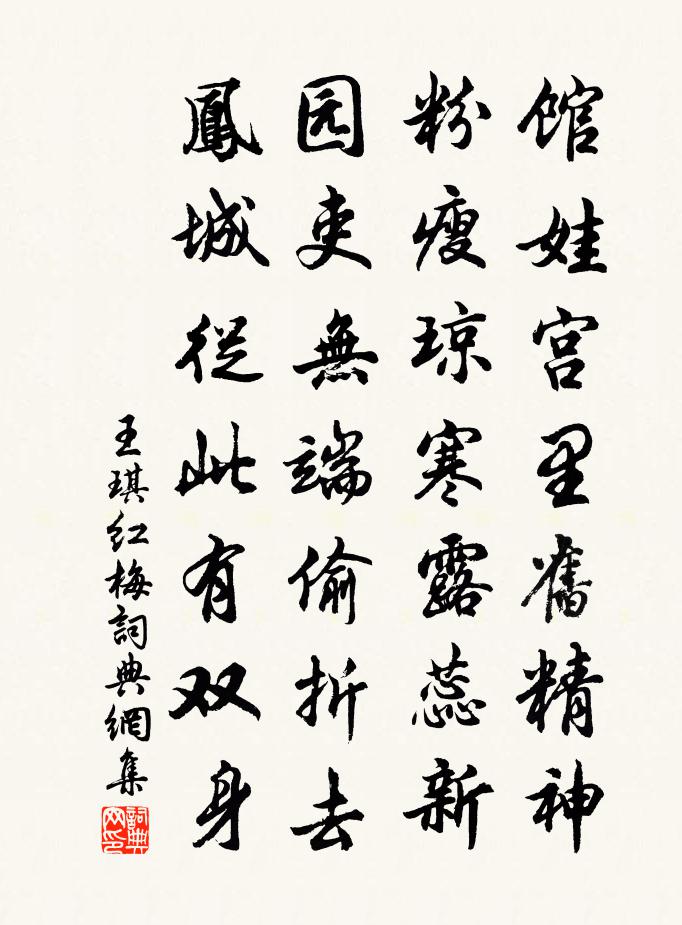 馆娃宫里舊精神
粉瘦琼寒露蕊新
园吏無端偷折去
鳳城從此有双身
王琪红梅詞典網集
詞典网印